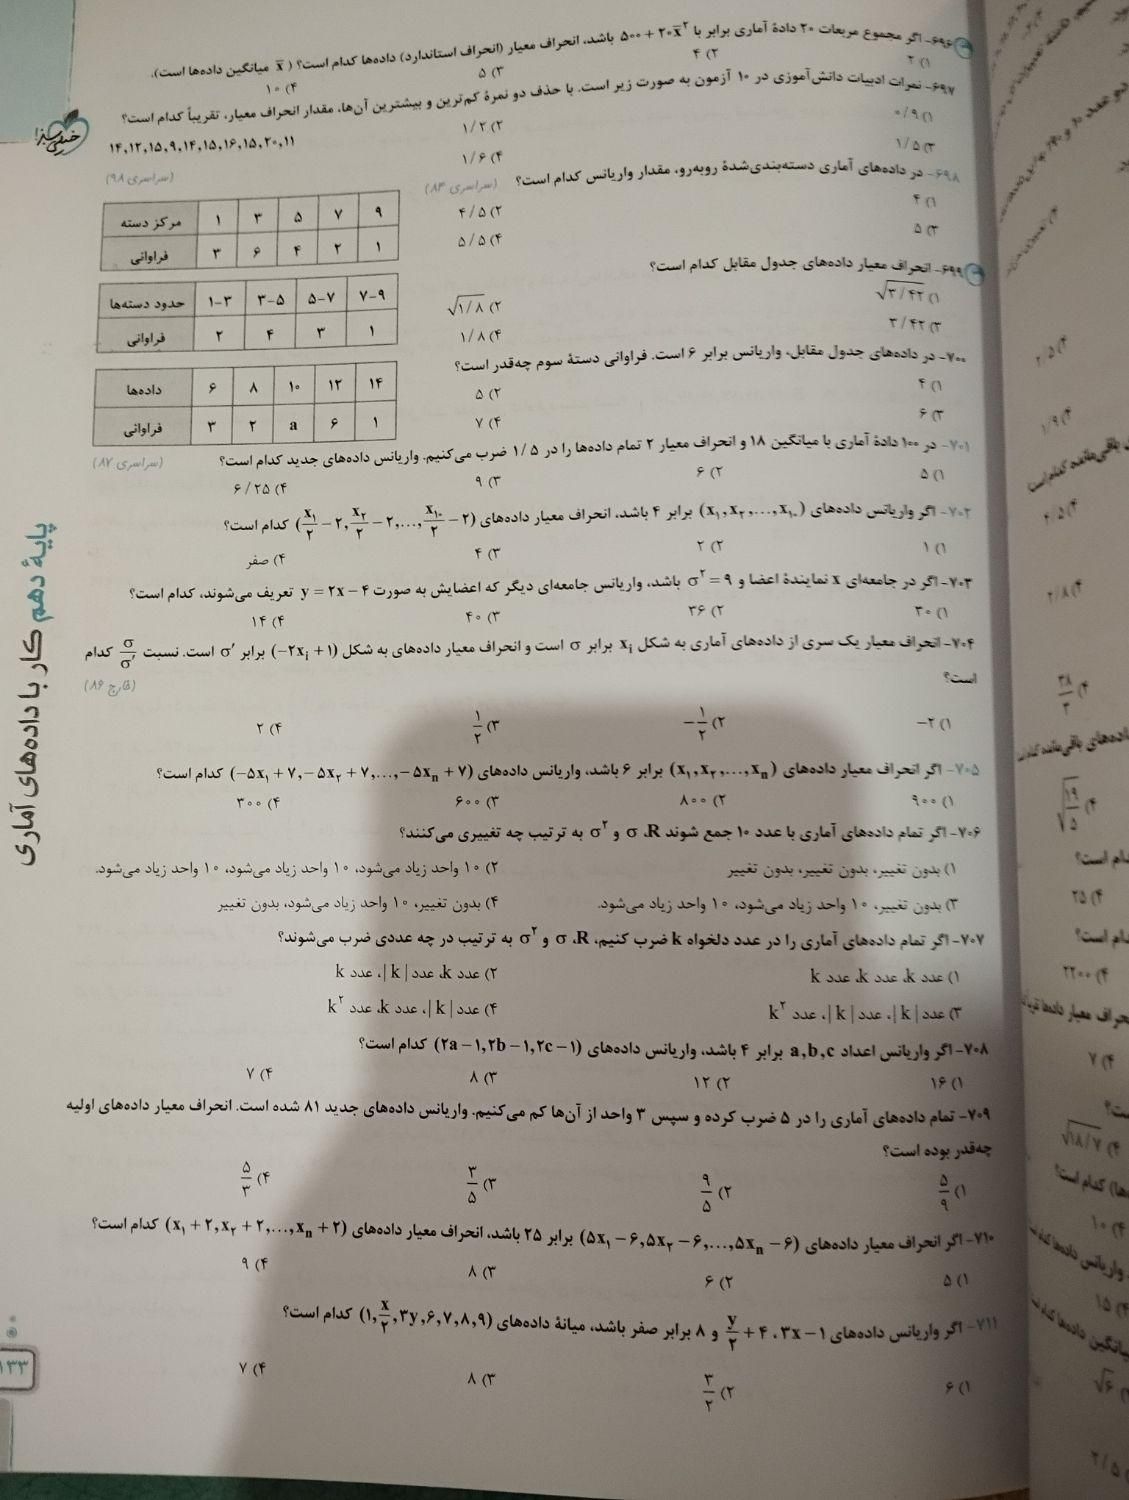 ۶۹۶- اگر مجموع مربعات ۲۰ دادهٔ آماری برابر با ۵۰۰ + ۲۰x̄² باشد، انحراف معیار (انحراف استاندارد) داده‌ها کدام است؟ (x̄ میانگین داده‌ها است).
۱) ۲ ۲) ۴ ۳) ۵ ۴) ۱۰
۶۹۷- نمرات ادبیات دانش‌آموزی در ۱۰ آزمون به صورت زیر است. با حذف دو نمرهٔ کم‌ترین و بیشترین آن‌ها، مقدار انحراف معیار، تقریباً کدام است؟
۱۴,۱۲,۱۵,۹,۱۴,۱۵,۱۶,۱۵,۲۰,۱۱
(سراسری ۹۸)
۱) ۰/۹ ۲) ۱/۲
۳) ۱/۵ ۴) ۱/۶
۶۹۸- در داده‌های آماری دسته‌بندی‌شدهٔ روبه‌رو، مقدار واریانس کدام است؟ (سراسری ۸۴)
۱) ۴ ۲) ۴/۵
۳) ۵ ۴) ۵/۵
مرکز دسته ۱ ۳ ۵ ۷ ۹
فراوانی ۳ ۶ ۴ ۲ ۱
۶۹۹- انحراف معیار داده‌های جدول مقابل کدام است؟
۱) √۳/۴۲ ۲) √۱/۸
۳) ۳/۴۲ ۴) ۱/۸
حدود دسته‌ها ۱-۳ ۳-۵ ۵-۷ ۷-۹
فراوانی ۲ ۴ ۳ ۱
۷۰۰- در داده‌های جدول مقابل، واریانس برابر ۶ است. فراوانی دستهٔ سوم چه‌قدر است؟
۱) ۴ ۲) ۵
۳) ۶ ۴) ۷
داده‌ها ۶ ۸ ۱۰ ۱۲ ۱۴
فراوانی ۳ ۲ a ۶ ۱
۷۰۱- در ۱۰۰ دادهٔ آماری با میانگین ۱۸ و انحراف معیار ۲ تمام داده‌ها را در ۱/۵ ضرب می‌کنیم. واریانس داده‌های جدید کدام است؟ (سراسری ۸۷)
۱) ۵ ۲) ۶ ۳) ۹ ۴) ۶/۲۵
۷۰۲- اگر واریانس داده‌های (x₁,x₂,...,x₁₀) برابر ۴ باشد، انحراف معیار داده‌های (x₁/۲ − ۲, x₂/۲ − ۲,..., x₁₀/۲ − ۲) کدام است؟
۱) ۱ ۲) ۲ ۳) ۴ ۴) صفر
۷۰۳- اگر در جامعه‌ای x نمایندهٔ اعضا و σ² = ۹ باشد، واریانس جامعه‌ای دیگر که اعضایش به صورت y = ۲x − ۴ تعریف می‌شوند، کدام است؟
۱) ۳۰ ۲) ۳۶ ۳) ۴۰ ۴) ۱۴
۷۰۴- انحراف معیار یک سری از داده‌های آماری به شکل xᵢ برابر σ است و انحراف معیار داده‌های به شکل (−۲xᵢ + ۱) برابر σ′ است. نسبت σ/σ′ کدام
است؟ (خارج ۸۶)
۱) −۲ ۲) −۱/۲ ۳) ۱/۲ ۴) ۲
۷۰۵- اگر انحراف معیار داده‌های (x₁,x₂,...,xₙ) برابر ۶ باشد، واریانس داده‌های (−۵x₁ + ۷, −۵x₂ + ۷,..., −۵xₙ + ۷) کدام است؟
۱) ۹۰۰ ۲) ۸۰۰ ۳) ۶۰۰ ۴) ۳۰۰
۷۰۶- اگر تمام داده‌های آماری با عدد ۱۰ جمع شوند R، σ و σ² به ترتیب چه تغییری می‌کنند؟
۱) بدون تغییر، بدون تغییر، بدون تغییر ۲) ۱۰ واحد زیاد می‌شود، ۱۰ واحد زیاد می‌شود، ۱۰ واحد زیاد می‌شود.
۳) بدون تغییر، ۱۰ واحد زیاد می‌شود، ۱۰ واحد زیاد می‌شود. ۴) بدون تغییر، ۱۰ واحد زیاد می‌شود، بدون تغییر
۷۰۷- اگر تمام داده‌های آماری را در عدد دلخواه k ضرب کنیم، R، σ و σ² به ترتیب در چه عددی ضرب می‌شوند؟
۱) عدد k، عدد k، عدد k ۲) عدد k، عدد |k|، عدد k
۳) عدد |k|، عدد |k|، عدد k² ۴) عدد |k|، عدد k، عدد k²
۷۰۸- اگر واریانس اعداد a,b,c برابر ۴ باشد، واریانس داده‌های (۲a − ۱,۲b − ۱,۲c − ۱) کدام است؟
۱) ۱۶ ۲) ۱۲ ۳) ۸ ۴) ۷
۷۰۹- تمام داده‌های آماری را در ۵ ضرب کرده و سپس ۳ واحد از آن‌ها کم می‌کنیم. واریانس داده‌های جدید ۸۱ شده است. انحراف معیار داده‌های اولیه
چه‌قدر بوده است؟
۱) ۵/۹ ۲) ۹/۵ ۳) ۳/۵ ۴) ۵/۳
۷۱۰- اگر انحراف معیار داده‌های (۵x₁ − ۶,۵x₂ − ۶,...,۵xₙ − ۶) برابر ۲۵ باشد، انحراف معیار داده‌های (x₁ + ۲,x₂ + ۲,...,xₙ + ۲) کدام است؟
۱) ۵ ۲) ۶ ۳) ۸ ۴) ۹
۷۱۱- اگر واریانس داده‌های ۳x − ۱، y/۲ + ۴ و ۸ برابر صفر باشد، میانهٔ داده‌های (۱, x/۲, ۳y,۶,۷,۸,۹) کدام است؟
۱) ۶ ۲) ۳/۲ ۳) ۸ ۴) ۷
پایهٔ دهم کار با داده‌های آماری
۱۳۳
خیلی سبز